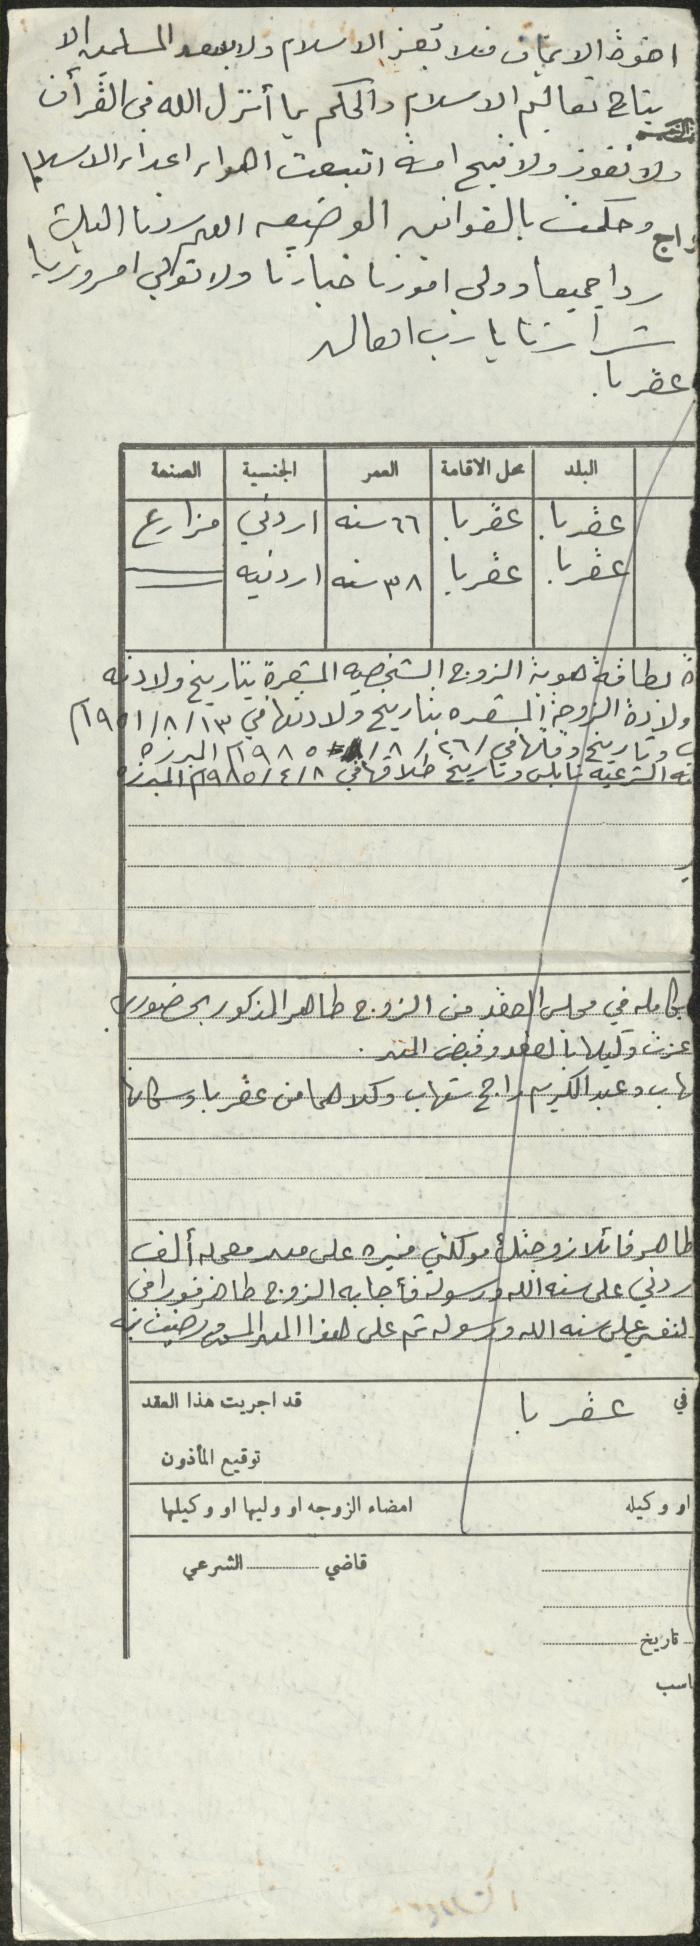 اخوة الايمان فلا تعز الاسلام ولا يسعد المسلمين الا
يتاج تعاليم الاسلام والحكم بما أنزل الله في القرأن
ولا تفوز ولا تنجح امة اتبعت اهواء اعداء الاسلام
وحكمت بالقوانين الوضيعه اللهم ردنا اليك
ردا جميعا وولي امورنا خيارنا ولا تولي امورنا يا
شرارنا يا رب العالمين
عقربا.
البلد محل الاقامة العمر الجنسية الصنعة
عقربا. عقربا. ٦٦ سنه اردني مزارع
عقربا. عقربا. ٣٨ سنه اردنيه
ة بطاقة هوية الزوج الشخصيه المشعرة بتاريخ ولادته
ولادة الزوجة المشعره بتاريخ ولادتها في ١٣/٨/١٩٥١م
وتاريخ في ٢٦/٨/١٩٨٥م المبرزه
ته الشرعيه نابلس وتاريخ طلاقها في ٨/٤/١٩٨٥م المبرزه
بكامله في مجلس العقد من الزوج طاهر المذكور بحضوري
عزت وكيلها بالعقد وقبض المهر.
هاب وعبد الكريم راجح شهاب وكلاهما من عقربا وسكانها
طاهر قائلا زوجتك موكلتي منيره على مهر معجله ألف
ردني على سنه الله ورسوله فأجابه الزوج طاهر فورا في
لنفسي على سنه الله ورسوله تم على هذا المهر المسمى ورضيت به
في عقربا قد اجريت هذا العقد
توقيع المأذون
او وكيله امضاء الزوجه او وليها او وكيلها
قاضي الشرعي
تاريخ
اسب